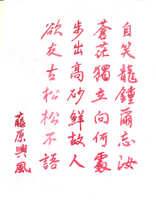 自笑龍鍾爾忘汝
蒼茫獨立向何處
步出高砂鮮故人
欲友古松松不語
藤原興風